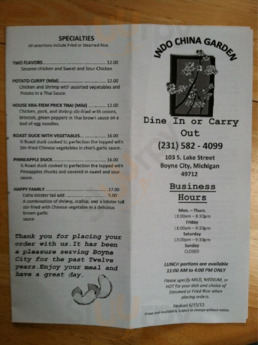 SPECIALTIES
All selections include Fried or Steamed Rice.
TWO FLAVORS 12.00
Sesame chicken and Sweet and Sour Chicken
POTATO CURRY (Mild) 12.00
Chicken and Shrimp with assorted vegetables and
Potato in a Thai Sauce.
HOUSE KRA-TIEM PRICK THAI (Mild) 12.00
Chicken, pork, and Shrimp stir-fried with onions,
broccoli, green peppers in Thai brown sauce on a
bed of egg noodles.
ROAST DUCK WITH VEGETABLES 16.00
½ Roast duck cooked to perfection the topped with
Stir-fried Chinese vegetables in chef's garlic sauce.
PINEAPPLE DUCK 16.00
½ Roast duck cooked to perfection the topped with
Pineapples chunks and covered in sweet and sour
sauce.
HAPPY FAMILY 17.00
Extra lobster tail add 5.00
A combination of shrimp, scallop, and a lobster tail
stir-fried with Chinese vegetable in a delicious
brown garlic
sauce
Thank you for placing your
order with us.It has been
a pleasure serving Boyne
City for the past Twelve
years.Enjoy your meal and
have a great day.
INDO CHINA GARDEN
Dine In or Carry
Out
(231) 582 - 4099
103 S. Lake Street
Boyne City, Michigan
49712
Business
Hours
Mon. – Thurs.
Friday
Saturday
Sunday
CLOSED
LUNCH portions are available
11:00 AM to 4:00 PM ONLY
Please specify MILD, MEDIUM, or
HOT for your dish and choice of
Steamed or Fried Rice when
placing orders.
Prices and Availability subject to change without notice.